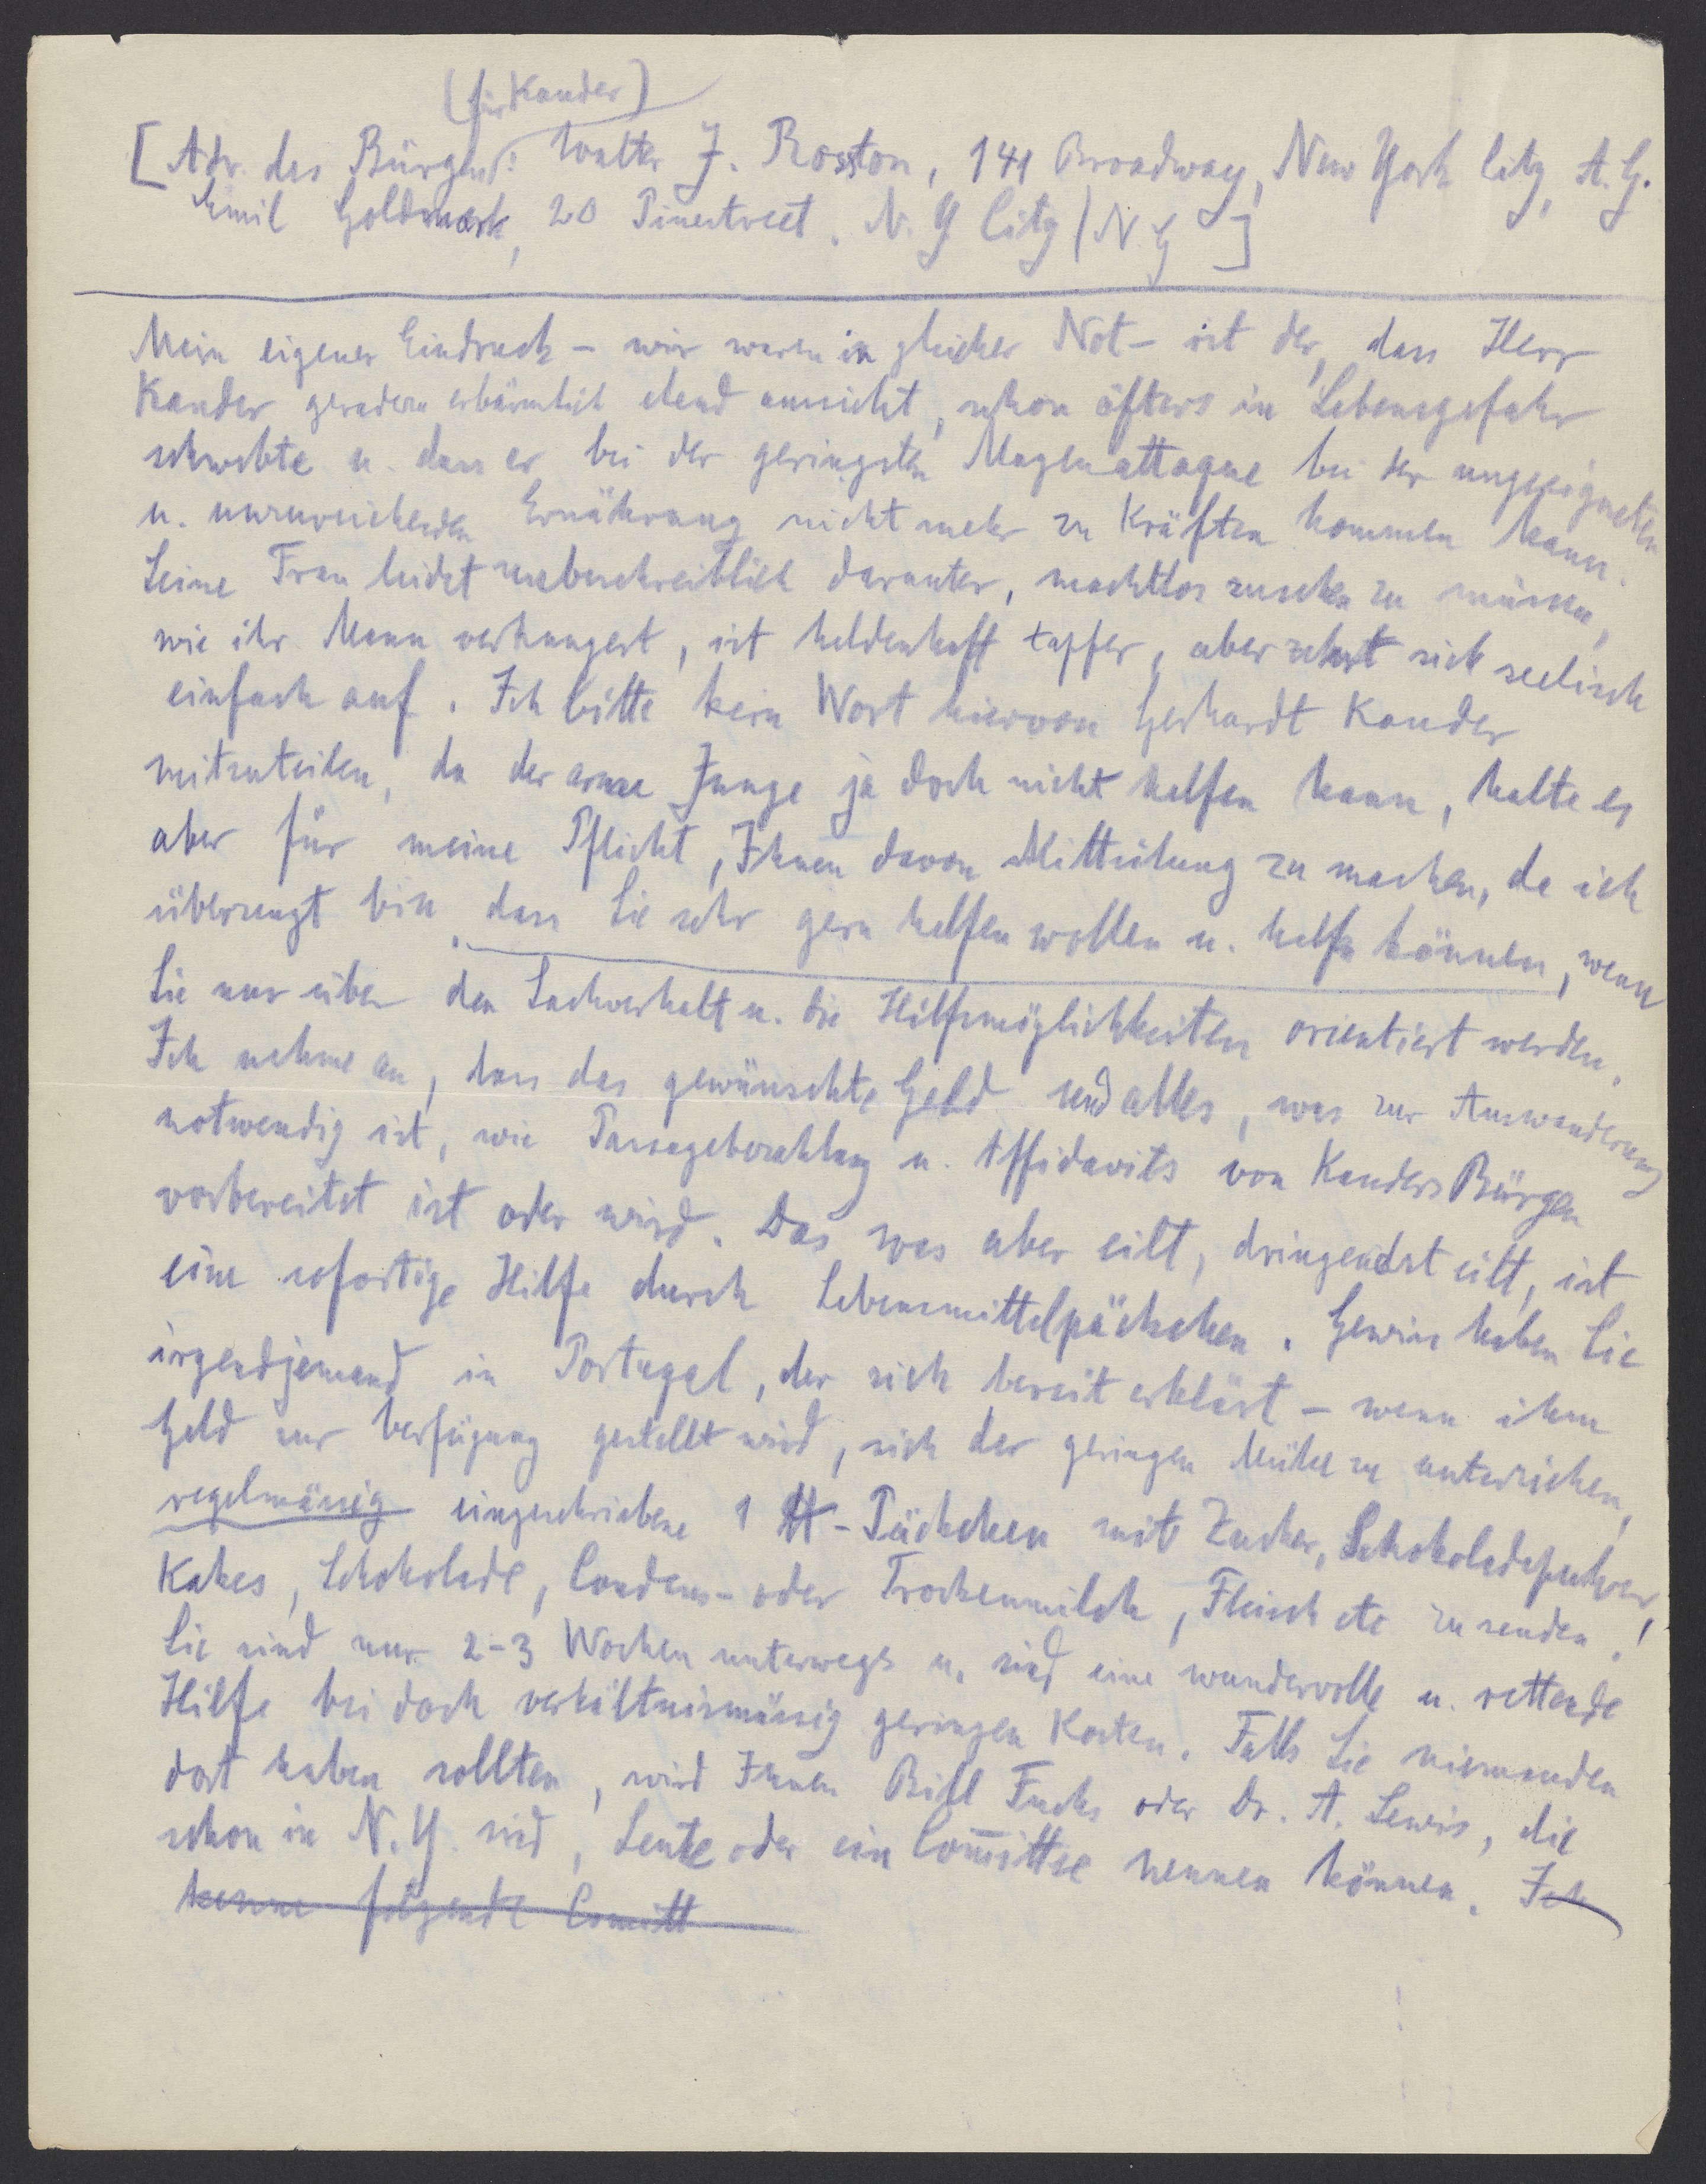 (für Kander)
[Adr. des Bürgen: Walter J. Rosston, 141 Broadway, New York City, N.Y.
Emil Goldmark, 20 Pinestreet, N.Y City / N.Y ]
Mein eigener Eindruck – wir waren in gleicher Not – ist der, dass Herr
Kander geradezu erbärmlich elend aussieht, schon öfters in Lebensgefahr
schwebte u. dass er bei der geringsten Magenattaque bei der ungeeigneten
u. unzureichenden Ernährung nicht mehr zu Kräften kommen kann.
Seine Frau leidet unbeschreiblich darunter, machtlos zusehen zu müssen,
wie ihr Mann verhungert, ist heldenhaft tapfer, aber zehrt sich seelisch
einfach auf. Ich bitte kein Wort hiervon Gerhardt Kander
mitzuteilen, da der arme Junge ja doch nicht helfen kann, halte es
aber für meine Pflicht, Ihnen davon Mitteilung zu machen, da ich
überzeugt bin, dass Sie sehr gern helfen wollen u. helfen können, wenn
Sie nur über den Sachverhalt u. die Hilfsmöglichkeiten orientiert werden.
Ich nehme an, dass das gewünschte Geld und alles, was zur Auswanderung
notwendig ist, wie Passagebezahlung u. Affidavits von Kanders Bürgen
vorbereitet ist oder wird. Das was aber eilt, dringendst eilt, ist
eine sofortige Hilfe durch Lebensmittelpäckchen. Gewiss haben Sie
irgendjemand in Portugal, der sich bereit erklärt – wenn ihm
Geld zur Verfügung gestellt wird, sich der geringen Mühe zu unterziehen,
regelmässig eingeschriebene 1 ℔-Päckchen mit Zucker, Schokoladepulver,
Kakes, Schokolade, Condens- oder Trockenmilch, Fleisch etc zu senden!
Sie sind nur 2-3 Wochen unterwegs u. sind eine wundervolle u. rettende
Hilfe bei doch verhältnismässig geringen Kosten. Falls Sie niemanden
dort haben sollten, wird Ihnen Bill Fuchs oder Dr. A. Lewis, die
schon in N.Y. sind, Leute oder ein Com̅ittee nennen können. Ich
kenne folgende Comitt